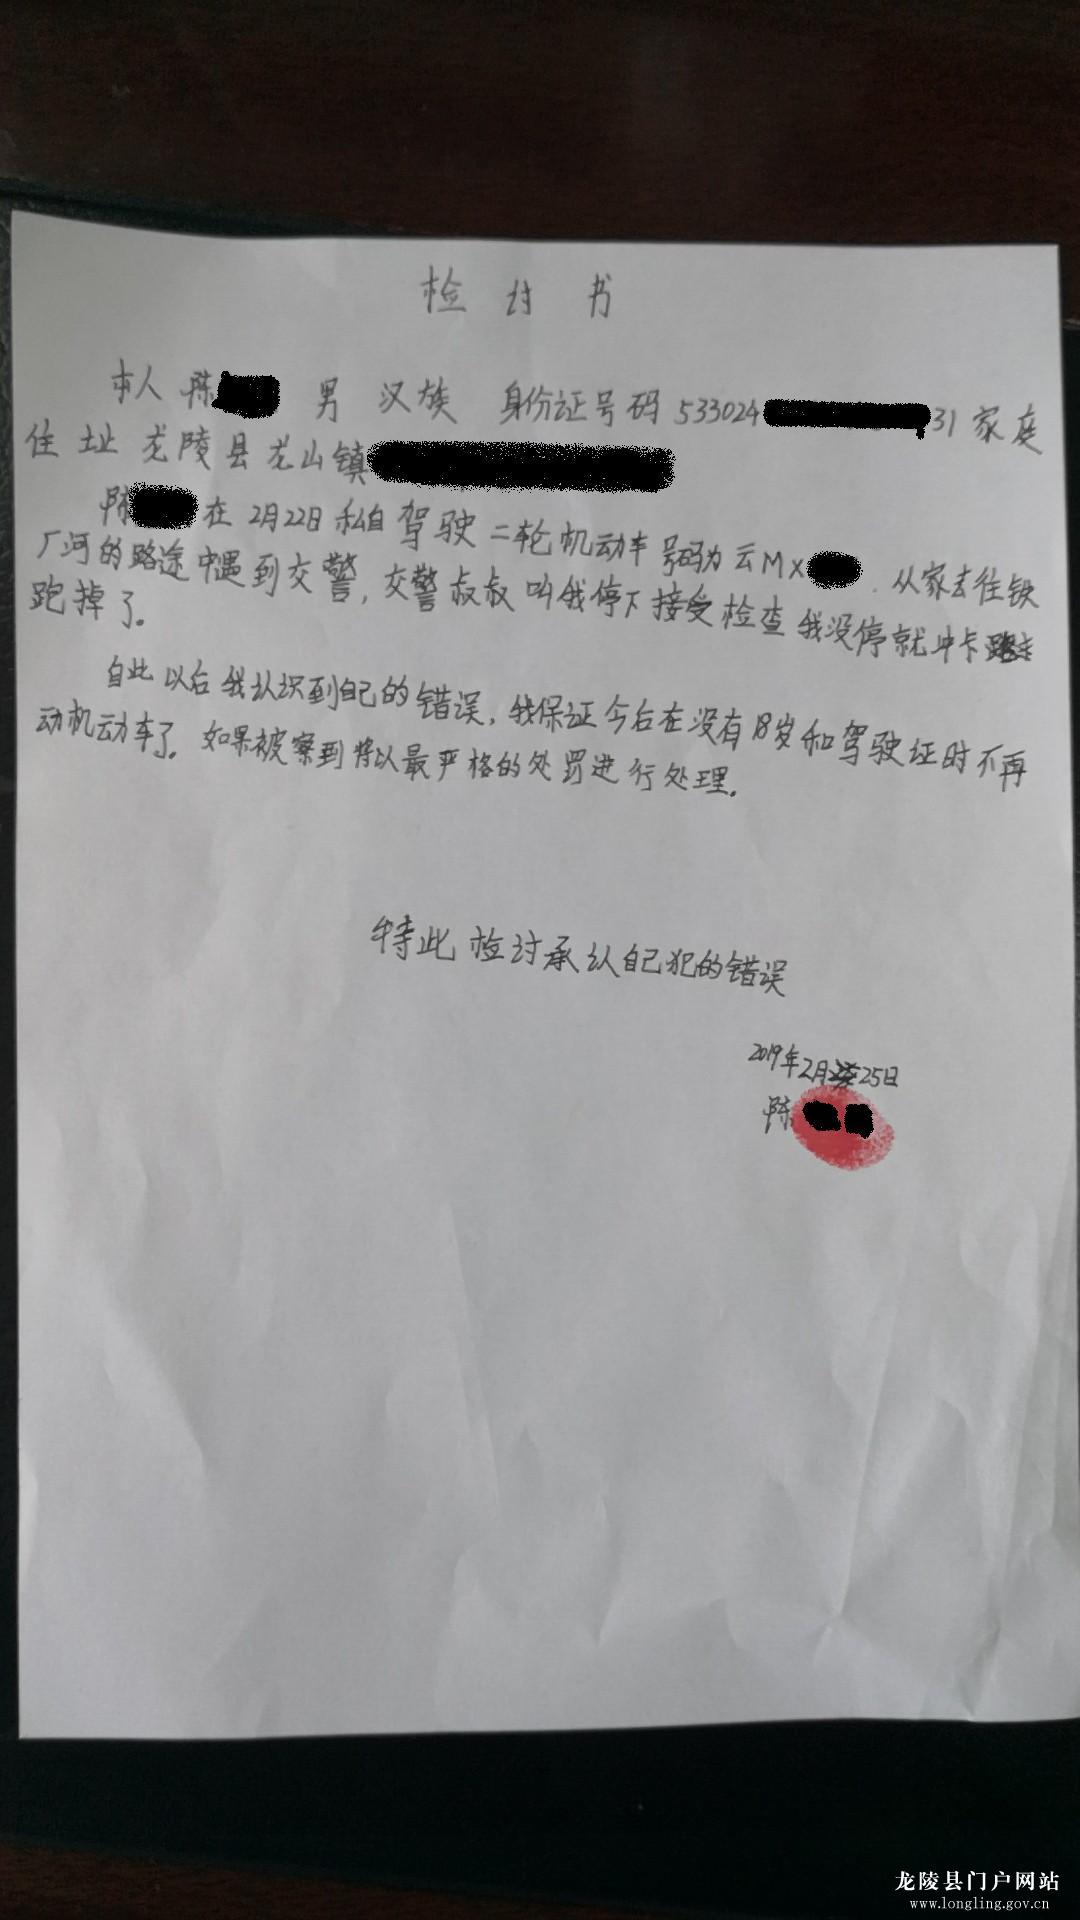 检讨书
本人 陈 男 汉族 身份证号码 533024 31 家庭
住址 龙陵县龙山镇
陈 在2月22日私自驾驶二轮机动车号码为云MX . 从家去往铁
厂河的路途中遇到交警,交警叔叔叫我停下接受检查我没停就冲卡
跑掉了。
自此以后我认识到自己的错误,我保证今后在没有18岁和驾驶证时不再
动机动车了。如果被察到将以最严格的处罚进行处理。
特此检讨承认自己犯的错误
2019年2月25日
陈
龙陵县门户网站
www.longling.gov.cn